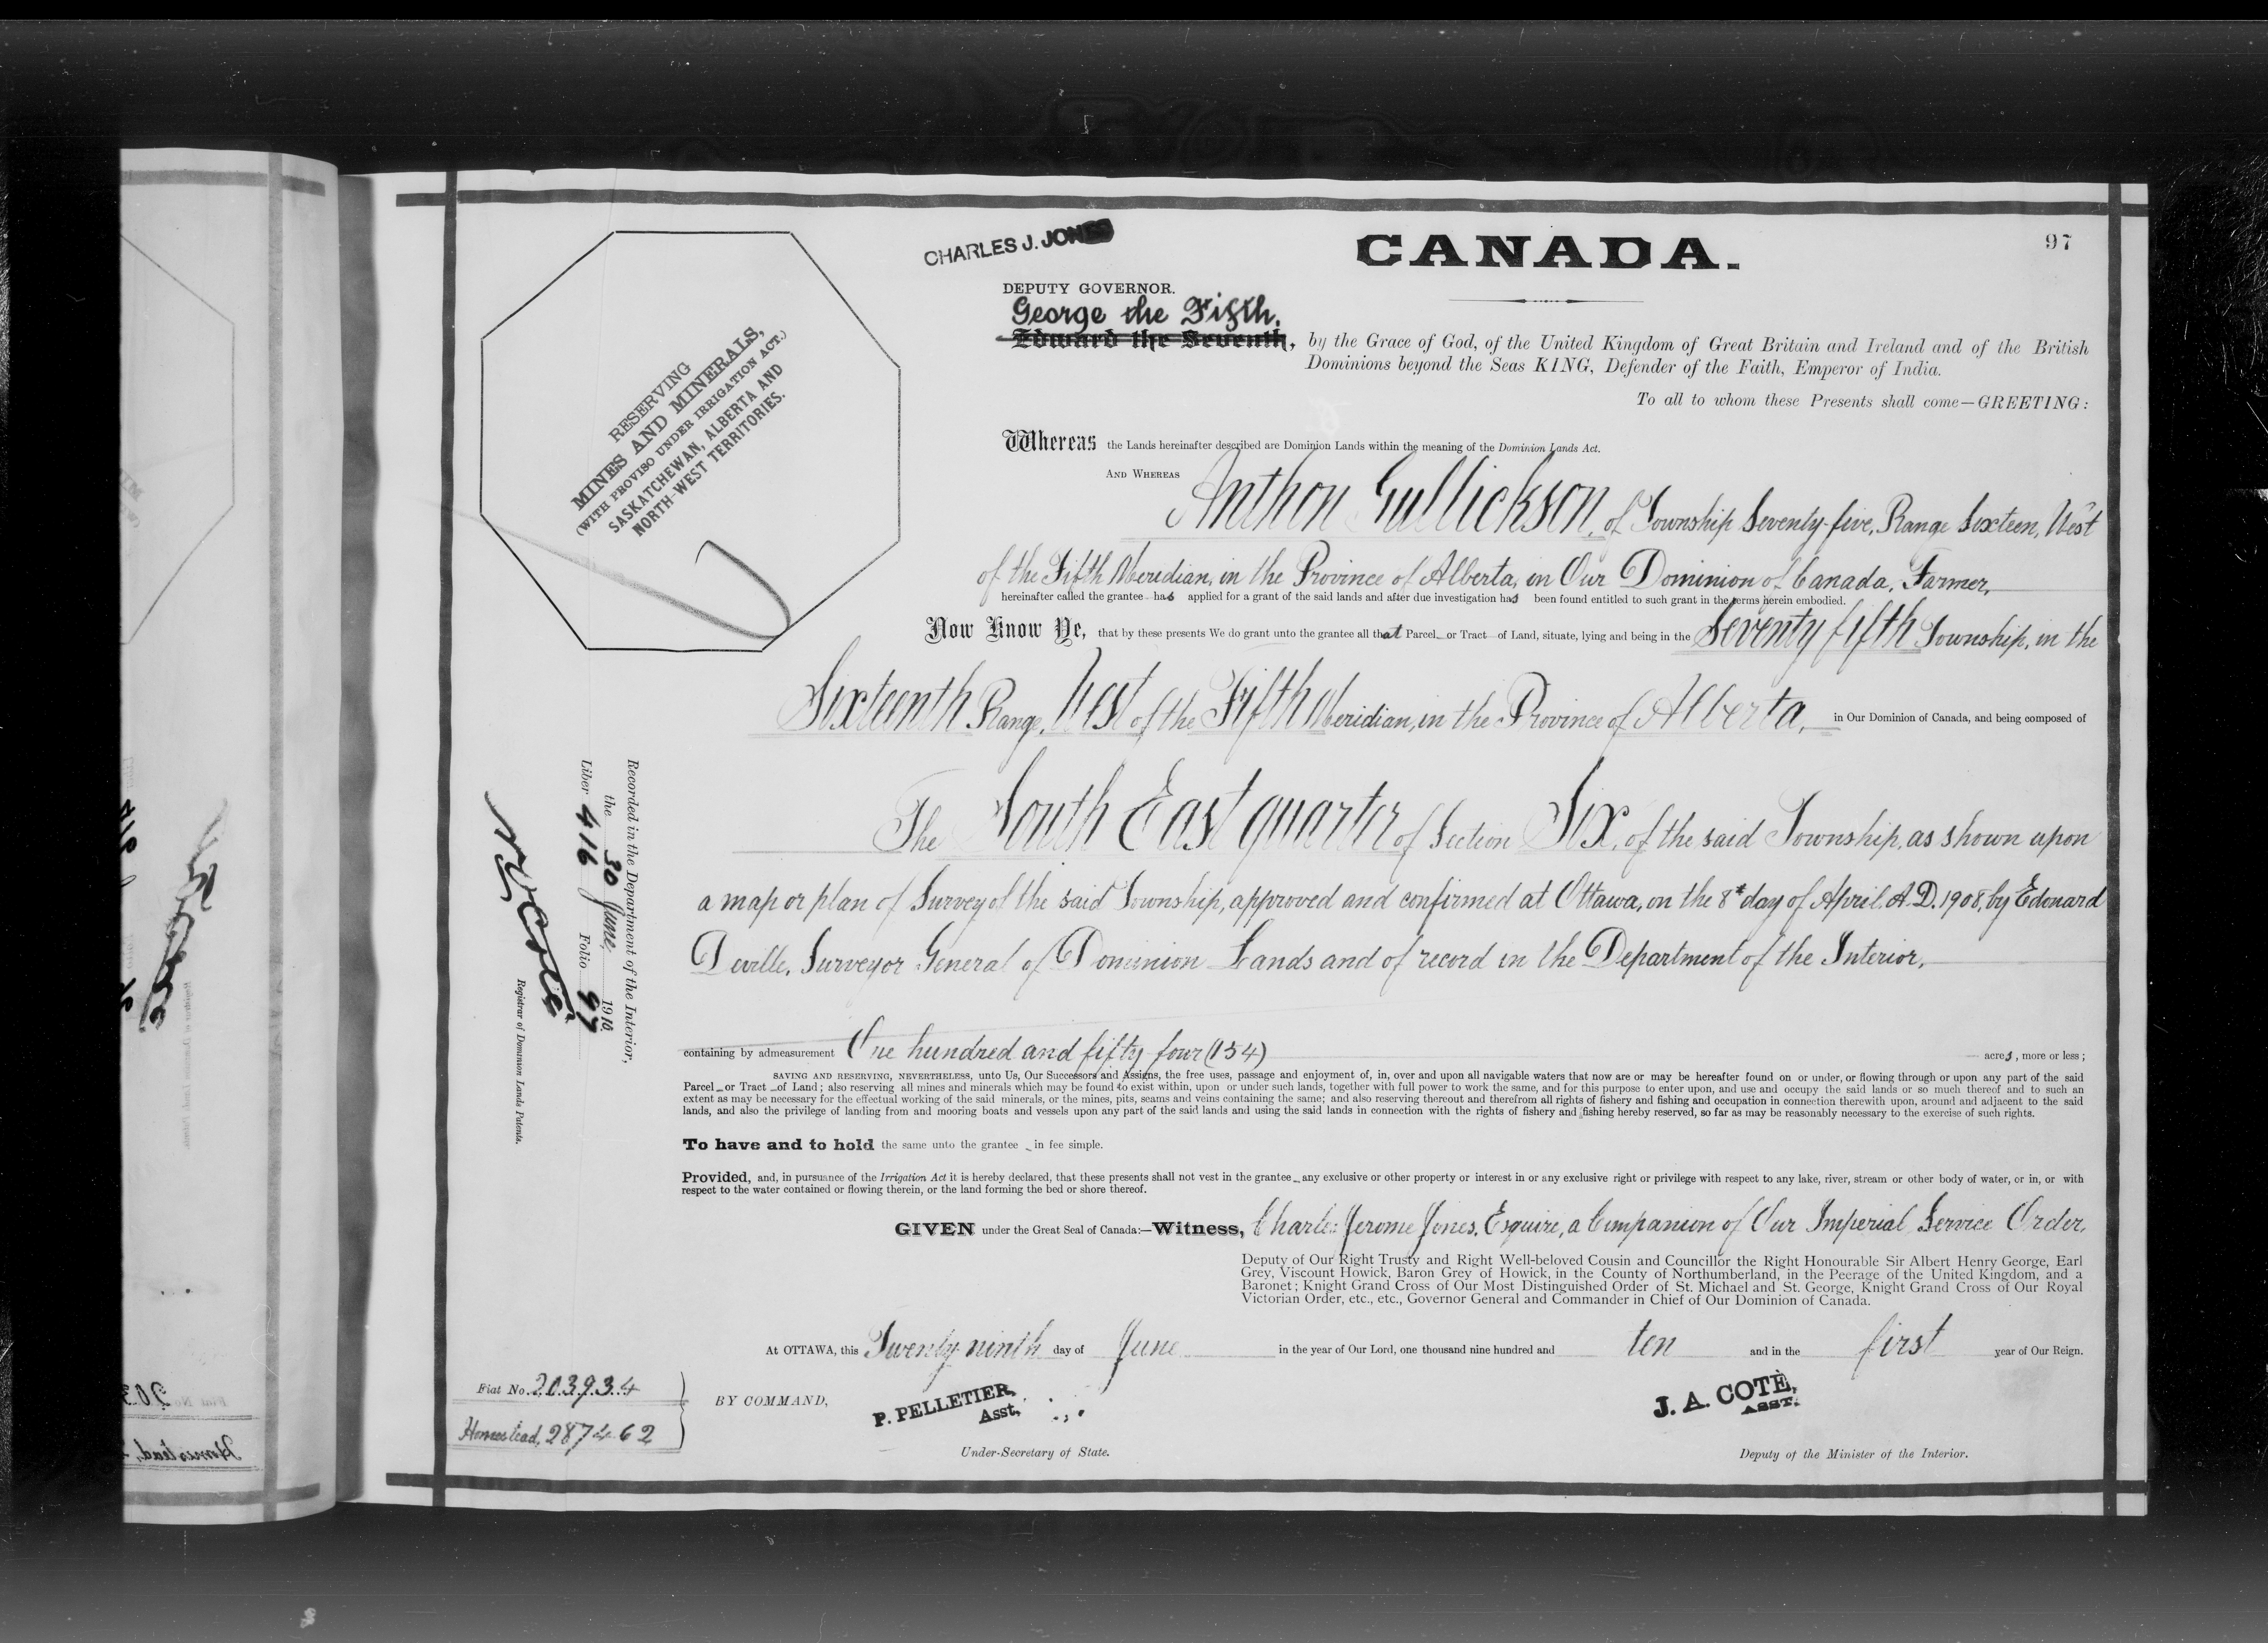 CANADA.
97
CHARLES J. JONES
DEPUTY GOVERNOR.
George the Fifth,
Edward the Seventh, by the Grace of God, of the United Kingdom of Great Britain and Ireland and of the British
Dominions beyond the Seas KING, Defender of the Faith, Emperor of India.
To all to whom these Presents shall come—GREETING:
RESERVING
MINES AND MINERALS,
(WITH PROVISO UNDER IRRIGATION ACT.)
SASKATCHEWAN, ALBERTA AND
NORTH-WEST TERRITORIES.
Whereas the Lands hereinafter described are Dominion Lands within the meaning of the Dominion Lands Act.
AND WHEREAS Anthon Gullickson, of Township Seventy-five, Range Sixteen, West
of the Fifth Meridian, in the Province of Alberta, in Our Dominion of Canada, Farmer,
hereinafter called the grantee has applied for a grant of the said lands and after due investigation has been found entitled to such grant in the terms herein embodied.
Now Know Ye, that by these presents We do grant unto the grantee all that Parcel or Tract of Land, situate, lying and being in the Seventy fifth Township, in the
Sixteenth Range, West of the Fifth Meridian, in the Province of Alberta, in Our Dominion of Canada, and being composed of
The South East quarter of Section Six, of the said Township, as shown upon
a map or plan of Survey of the said Township, approved and confirmed at Ottawa, on the 8th day of April, A.D. 1908, by Edouard
Deville, Surveyor General of Dominion Lands and of record in the Department of the Interior,
containing by admeasurement One hundred and fifty four (154) acres, more or less;
SAVING AND RESERVING, NEVERTHELESS, unto Us, Our Successors and Assigns, the free uses, passage and enjoyment of, in, over and upon all navigable waters that now are or may be hereafter found on or under, or flowing through or upon any part of the said
Parcel or Tract of Land; also reserving all mines and minerals which may be found to exist within, upon or under such lands, together with full power to work the same, and for this purpose to enter upon, and use and occupy the said lands or so much thereof and to such an
extent as may be necessary for the effectual working of the said minerals, or the mines, pits, seams and veins containing the same; and also reserving thereout and therefrom all rights of fishery and fishing and occupation in connection therewith upon, around and adjacent to the said
lands, and also the privilege of landing from and mooring boats and vessels upon any part of the said lands and using the said lands in connection with the rights of fishery and fishing hereby reserved, so far as may be reasonably necessary to the exercise of such rights.
To have and to hold the same unto the grantee in fee simple.
Provided, and, in pursuance of the Irrigation Act it is hereby declared, that these presents shall not vest in the grantee any exclusive or other property or interest in or any exclusive right or privilege with respect to any lake, river, stream or other body of water, or in, or with
respect to the water contained or flowing therein, or the land forming the bed or shore thereof.
GIVEN under the Great Seal of Canada:—Witness, Charles Jerome Jones, Esquire, a Companion of Our Imperial Service Order,
Deputy of Our Right Trusty and Right Well-beloved Cousin and Councillor the Right Honourable Sir Albert Henry George, Earl
Grey, Viscount Howick, Baron Grey of Howick, in the County of Northumberland, in the Peerage of the United Kingdom, and a
Baronet; Knight Grand Cross of Our Most Distinguished Order of St. Michael and St. George, Knight Grand Cross of Our Royal
Victorian Order, etc., etc., Governor General and Commander in Chief of Our Dominion of Canada.
At OTTAWA, this Twenty ninth day of June in the year of Our Lord, one thousand nine hundred and ten and in the first year of Our Reign.
BY COMMAND,
P. PELLETIER,
Asst,
Under-Secretary of State.
J. A. COTÈ,
ASST.
Deputy of the Minister of the Interior.
Fiat No. 203934
Homestead, 287462
Recorded in the Department of the Interior,
the 30 June, 1910
Liber 416 Folio 97
Registrar of Dominion Lands Patents.